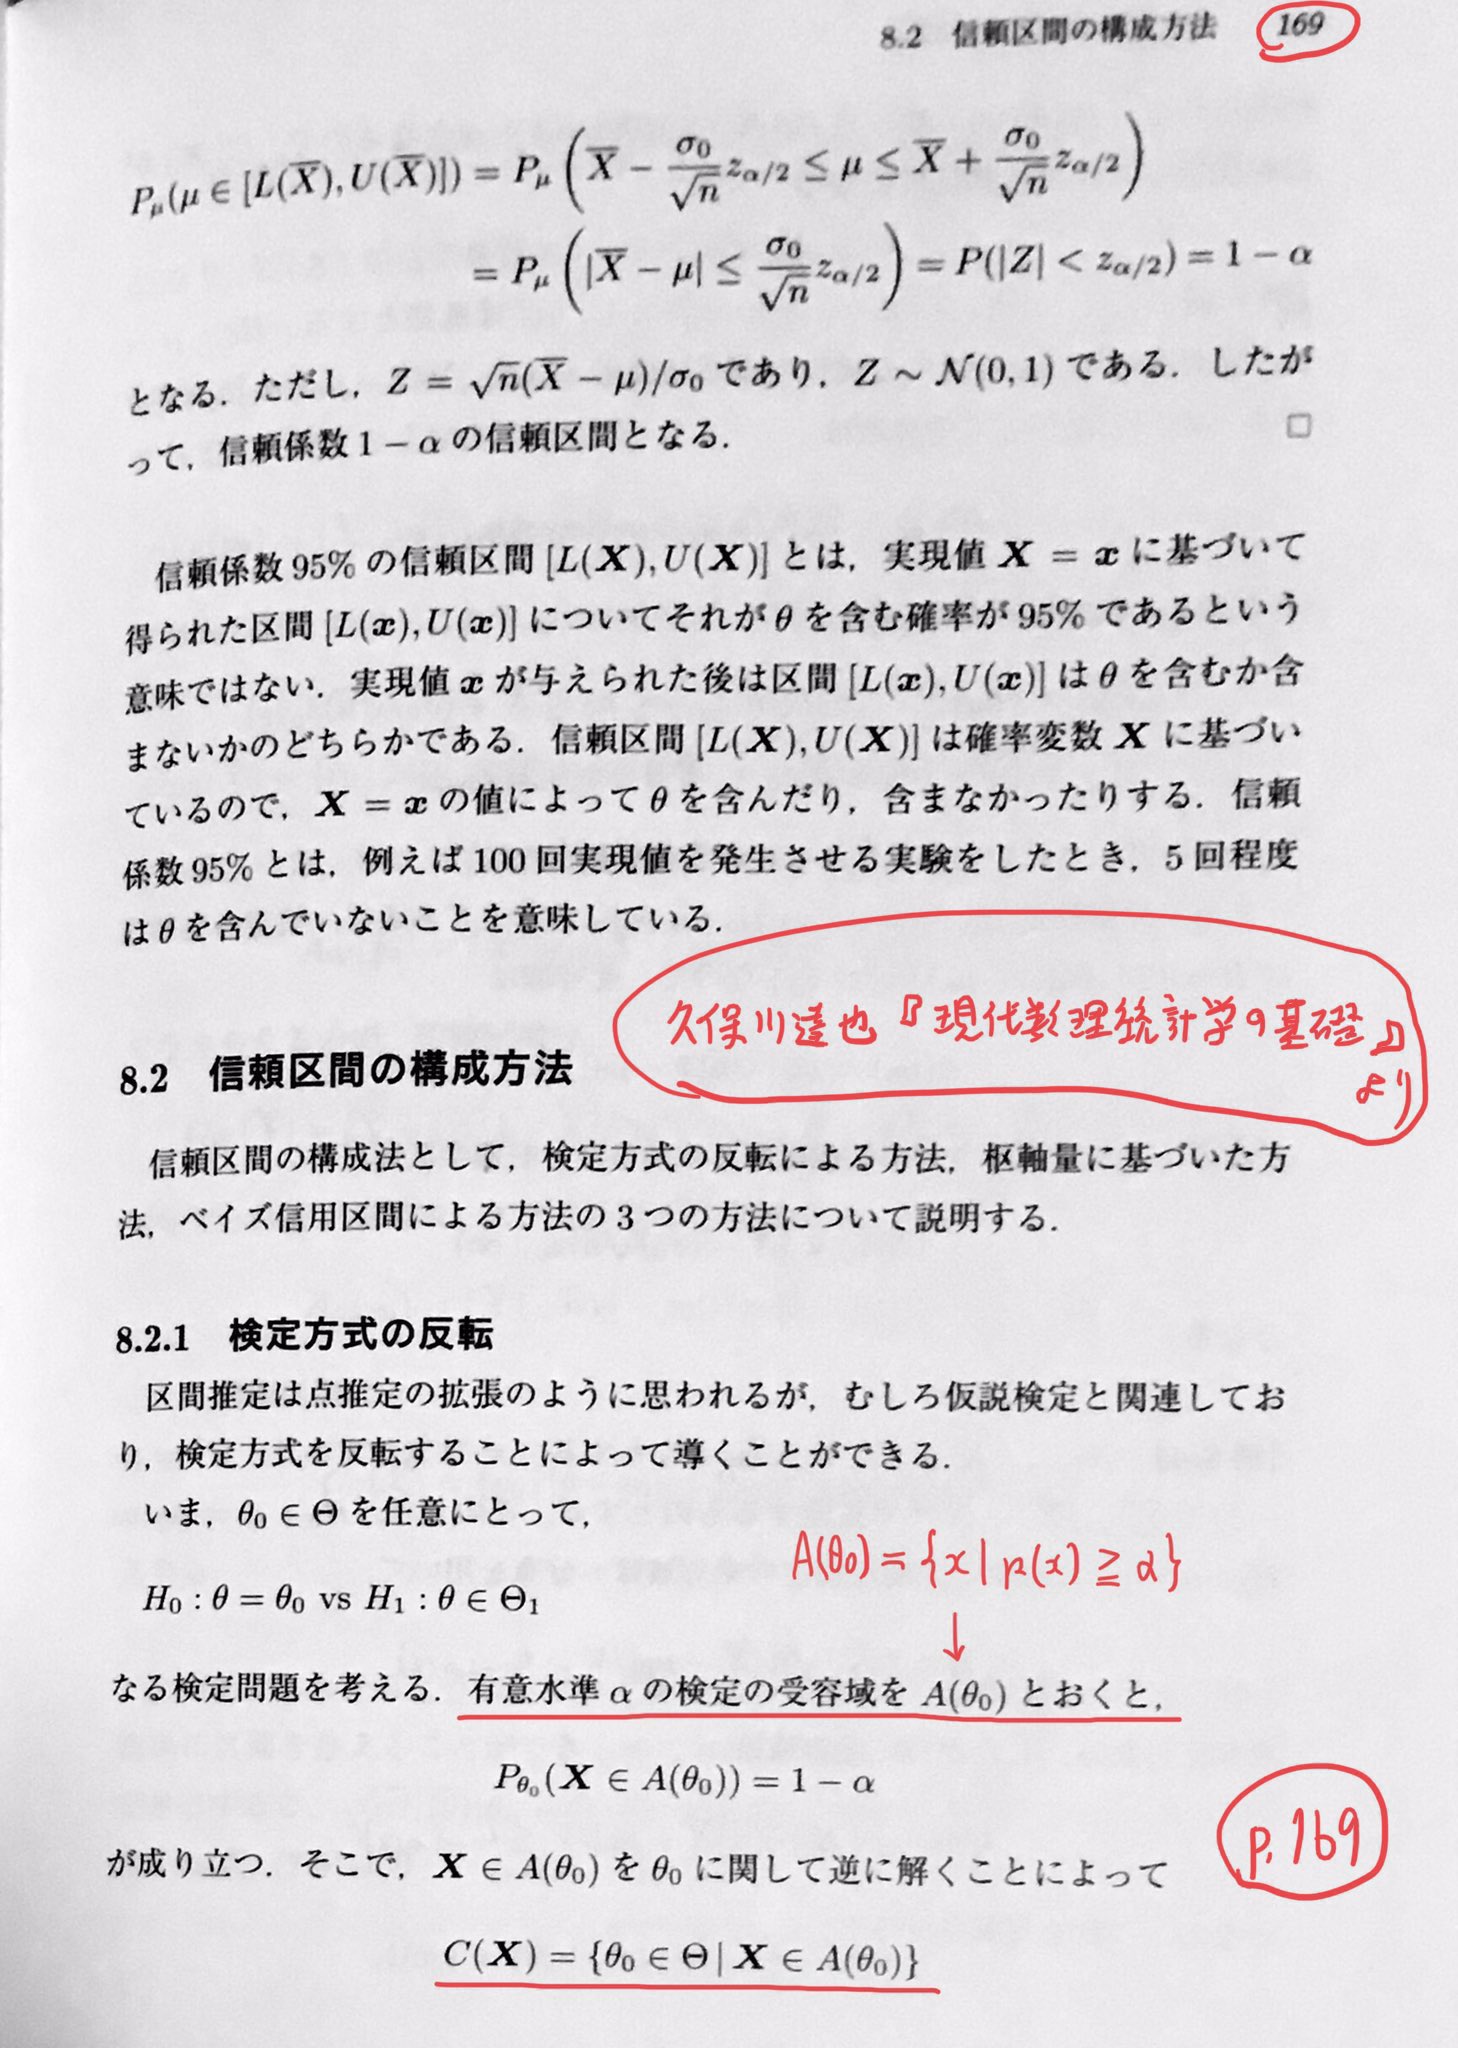 8.2 信頼区間の構成方法 169
P_μ(μ ∈ [L(X̄), U(X̄)]) = P_μ ( X̄ − σ₀/√n z_{α/2} ≤ μ ≤ X̄ + σ₀/√n z_{α/2} )
= P_μ ( |X̄ − μ| ≤ σ₀/√n z_{α/2} ) = P(|Z| < z_{α/2}) = 1 − α
となる．ただし，Z = √n(X̄ − μ)/σ₀ であり，Z ∼ N(0, 1) である．したが
って，信頼係数 1 − α の信頼区間となる． □
信頼係数 95% の信頼区間 [L(X), U(X)] とは，実現値 X = x に基づいて
得られた区間 [L(x), U(x)] についてそれが θ を含む確率が 95% であるという
意味ではない．実現値 x が与えられた後は区間 [L(x), U(x)] は θ を含むか含
まないかのどちらかである．信頼区間 [L(X), U(X)] は確率変数 X に基づい
ているので，X = x の値によって θ を含んだり，含まなかったりする．信頼
係数 95% とは，例えば 100 回実現値を発生させる実験をしたとき，5 回程度
は θ を含んでいないことを意味している．
久保川達也『現代数理統計学の基礎』
より
8.2 信頼区間の構成方法
信頼区間の構成法として，検定方式の反転による方法，枢軸量に基づいた方
法，ベイズ信用区間による方法の 3 つの方法について説明する．
8.2.1 検定方式の反転
区間推定は点推定の拡張のように思われるが，むしろ仮説検定と関連してお
り，検定方式を反転することによって導くことができる．
いま，θ₀ ∈ Θ を任意にとって，
A(θ₀) = {x | p(x) ≧ α}
↓
H₀ : θ = θ₀ vs H₁ : θ ∈ Θ₁
なる検定問題を考える．有意水準 α の検定の受容域を A(θ₀) とおくと，
P_{θ₀}(X ∈ A(θ₀)) = 1 − α
p.169
が成り立つ．そこで，X ∈ A(θ₀) を θ₀ に関して逆に解くことによって
C(X) = {θ₀ ∈ Θ | X ∈ A(θ₀)}